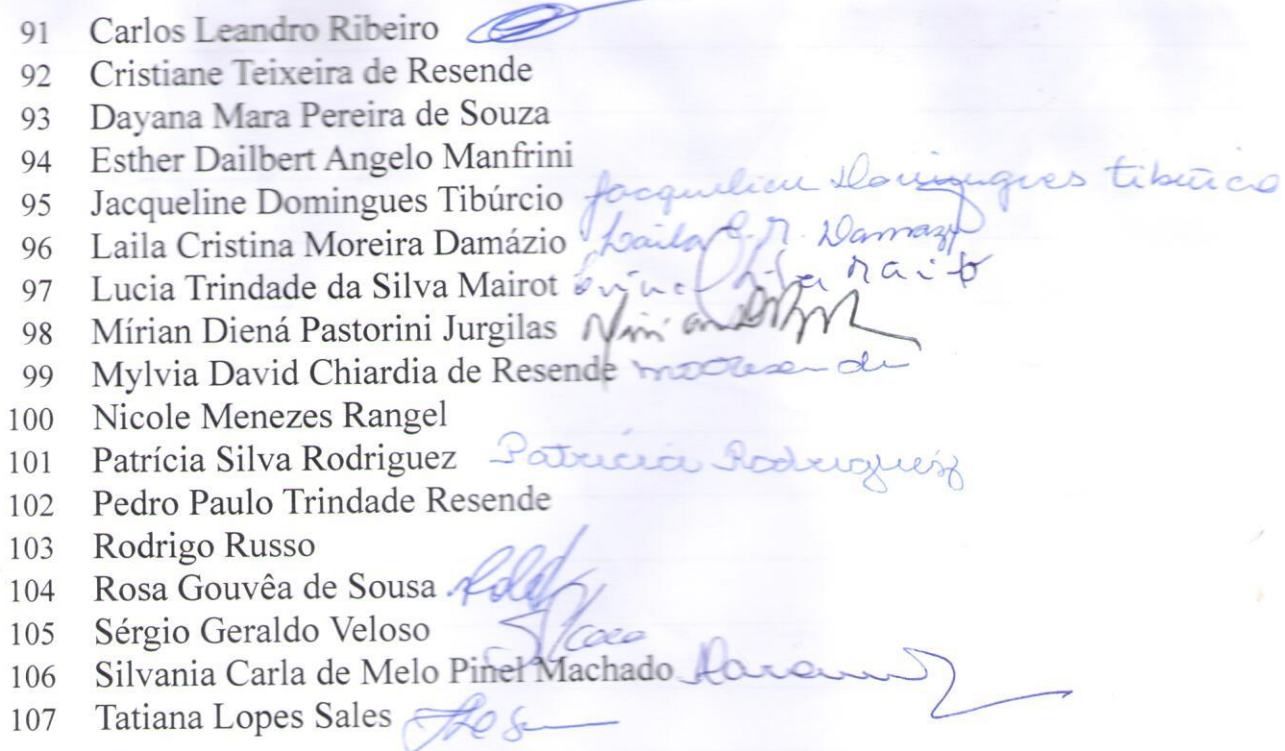 91 Carlos Leandro Ribeiro
92 Cristiane Teixeira de Resende
93 Dayana Mara Pereira de Souza
94 Esther Dailbert Angelo Manfrini
95 Jacqueline Domingues Tibúrcio Jacqueline Domingues Tibúrcio
96 Laila Cristina Moreira Damázio Laila C. M. Damazio
97 Lucia Trindade da Silva Mairot
98 Mírian Diená Pastorini Jurgilas
99 Mylvia David Chiardia de Resende
100 Nicole Menezes Rangel
101 Patrícia Silva Rodriguez Patrícia Rodriguez
102 Pedro Paulo Trindade Resende
103 Rodrigo Russo
104 Rosa Gouvêa de Sousa
105 Sérgio Geraldo Veloso
106 Silvania Carla de Melo Pinel Machado
107 Tatiana Lopes Sales